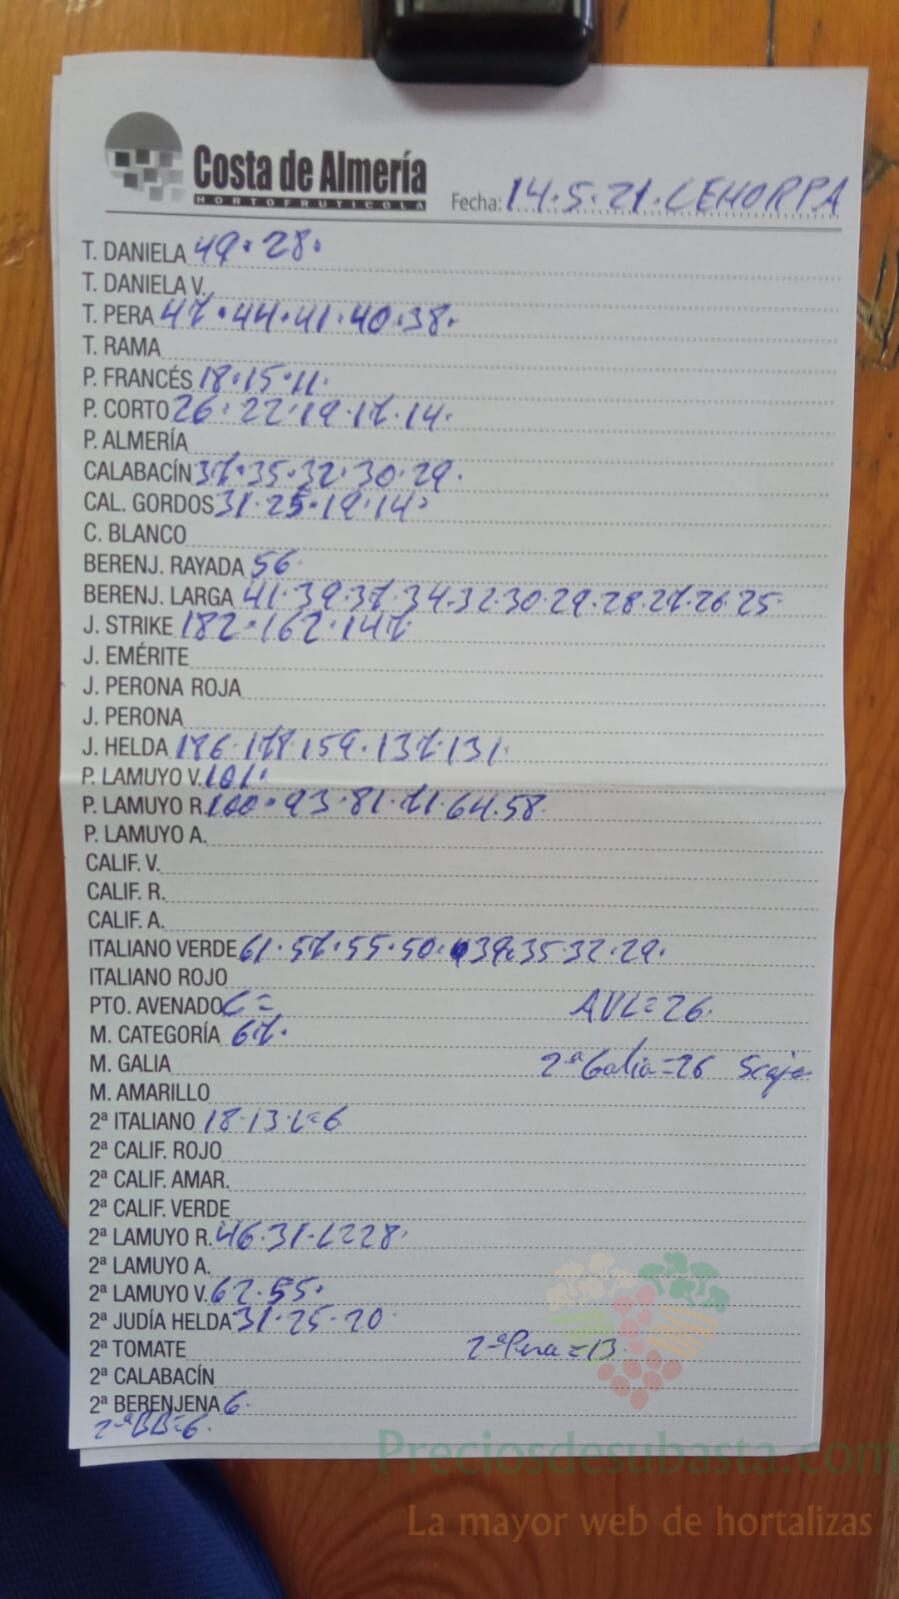 Costa de Almería
HORTOFRUTICOLA
Fecha: 14.5.21. CEHORPA
T. DANIELA 49. 28.
T. DANIELA V.
T. PERA 47.44.41.40.38.
T. RAMA
P. FRANCÉS 18.15.11.
P. CORTO 26.22.19.17.14.
P. ALMERÍA
CALABACÍN 37.35.32.30.29.
CAL. GORDOS 31.25.19.14.
C. BLANCO
BERENJ. RAYADA 56
BERENJ. LARGA 41.39.37.34.32.30.29.28.27.26.25.
J. STRIKE 182.162.147.
J. EMÉRITE
J. PERONA ROJA
J. PERONA
J. HELDA 186. 159.137.131.
P. LAMUYO V. 101.
P. LAMUYO R. 100.93.81.71.64.58.
P. LAMUYO A.
CALIF. V.
CALIF. R.
CALIF. A.
ITALIANO VERDE 61.57.55.50. 39.35.32.29.
ITALIANO ROJO
PTO. AVENADO C= AVL=26.
M. CATEGORÍA 67.
M. GALIA 2ª Galia=26 5caja
M. AMARILLO
2ª ITALIANO 18.13.L=6
2ª CALIF. ROJO
2ª CALIF. AMAR.
2ª CALIF. VERDE
2ª LAMUYO R. 46.31.L=28.
2ª LAMUYO A.
2ª LAMUYO V. 62.55.
2ª JUDÍA HELDA 31.25.20.
2ª TOMATE 2ª Pera=13.
2ª CALABACÍN
2ª BERENJENA 6.
2ª BB=6.
Preciosdesubasta.com
La mayor web de hortalizas